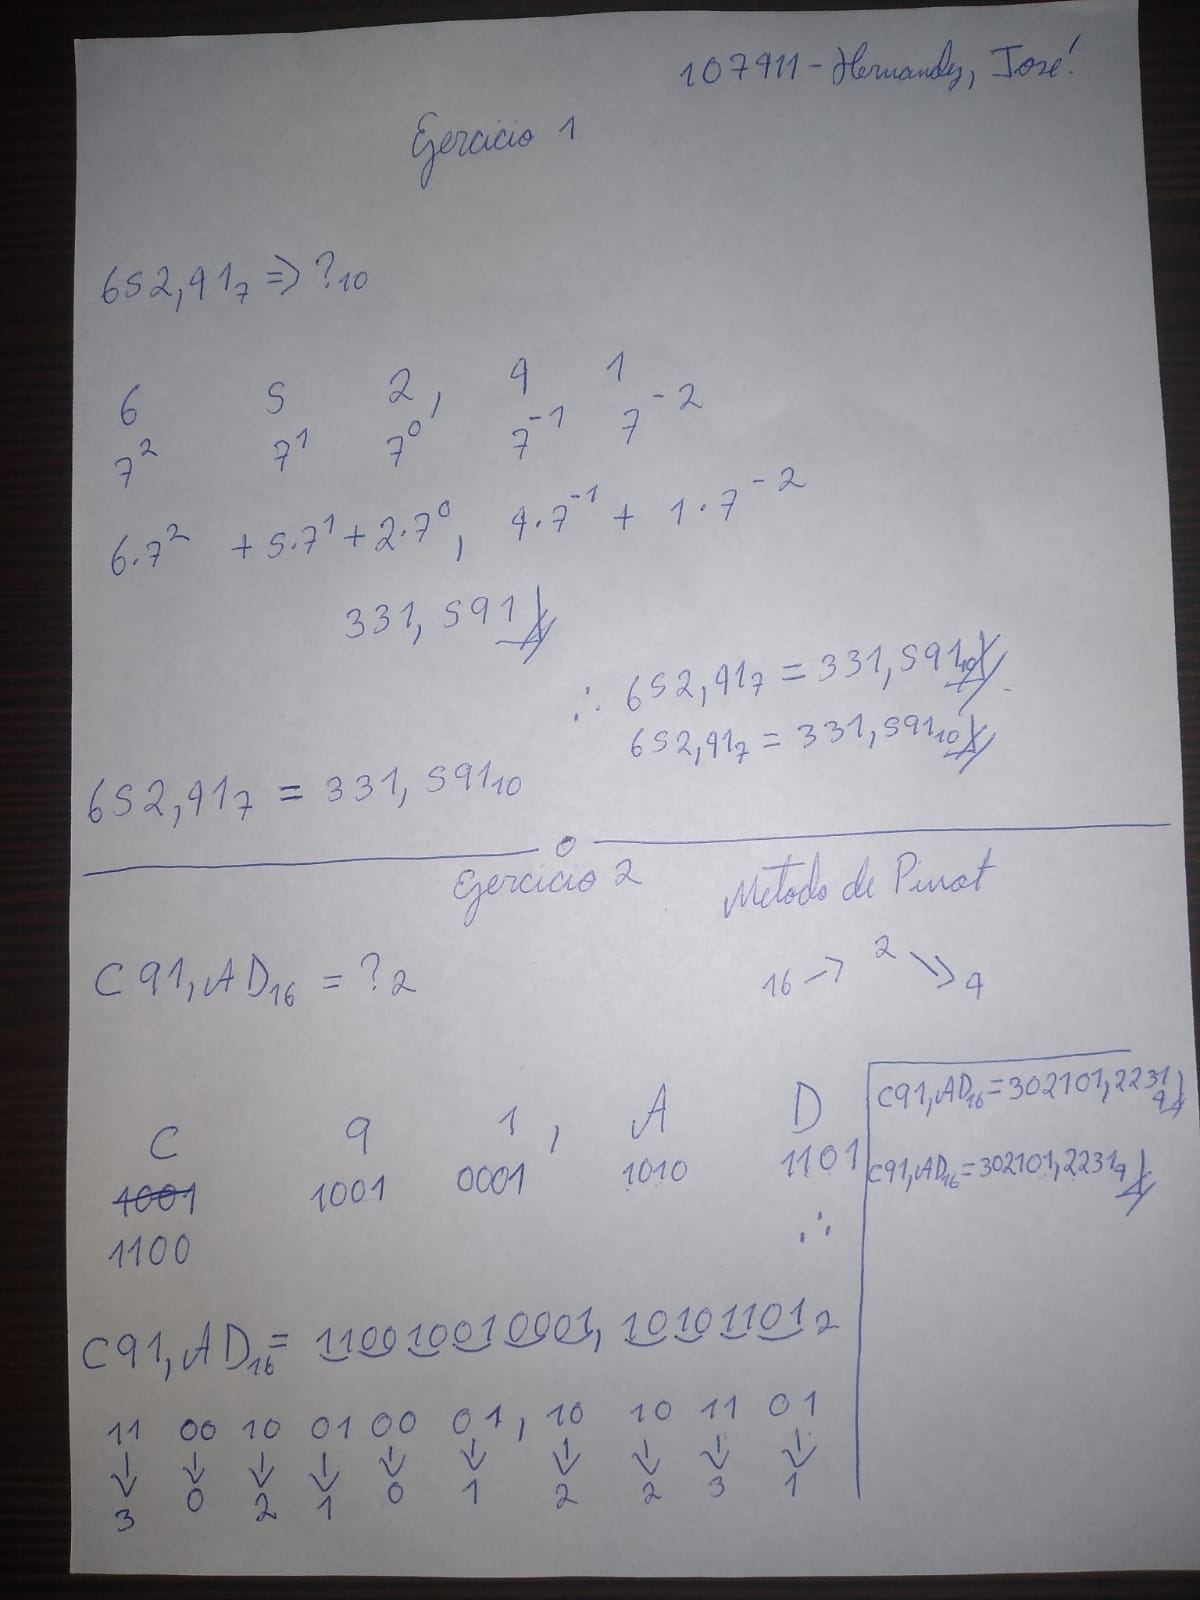 107911 - Hernandez, José
Ejercicio 1
652,41₇ => ?₁₀
6 5 2 , 4 1
7² 7¹ 7⁰ 7⁻¹ 7⁻²
6·7² + 5·7¹ + 2·7⁰, 4·7⁻¹ + 1·7⁻²
331,591
∴ 652,41₇ = 331,591₁₀
652,41₇ = 331,591₁₀
652,41₇ = 331,591₁₀
Ejercicio 2
Metodo de Pivot
C91,AD₁₆ = ?₂
16 → 2 ↘ 4
C 9 1 , A D
1001 1001 0001 1010 1101
1100
∴
C91,AD₁₆ = 302101,2231₄
C91,AD₁₆ = 302101,2231₄
C91,AD₁₆ = 110010010001,10101101₂
11 00 10 01 00 01 , 10 10 11 01
↓ ↓ ↓ ↓ ↓ ↓ ↓ ↓ ↓ ↓
3 0 2 1 0 1 2 2 3 1